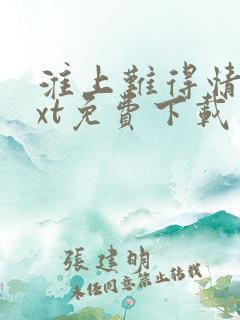 淮上難得情
xt免費下載
張建明
未经同意禁止转载